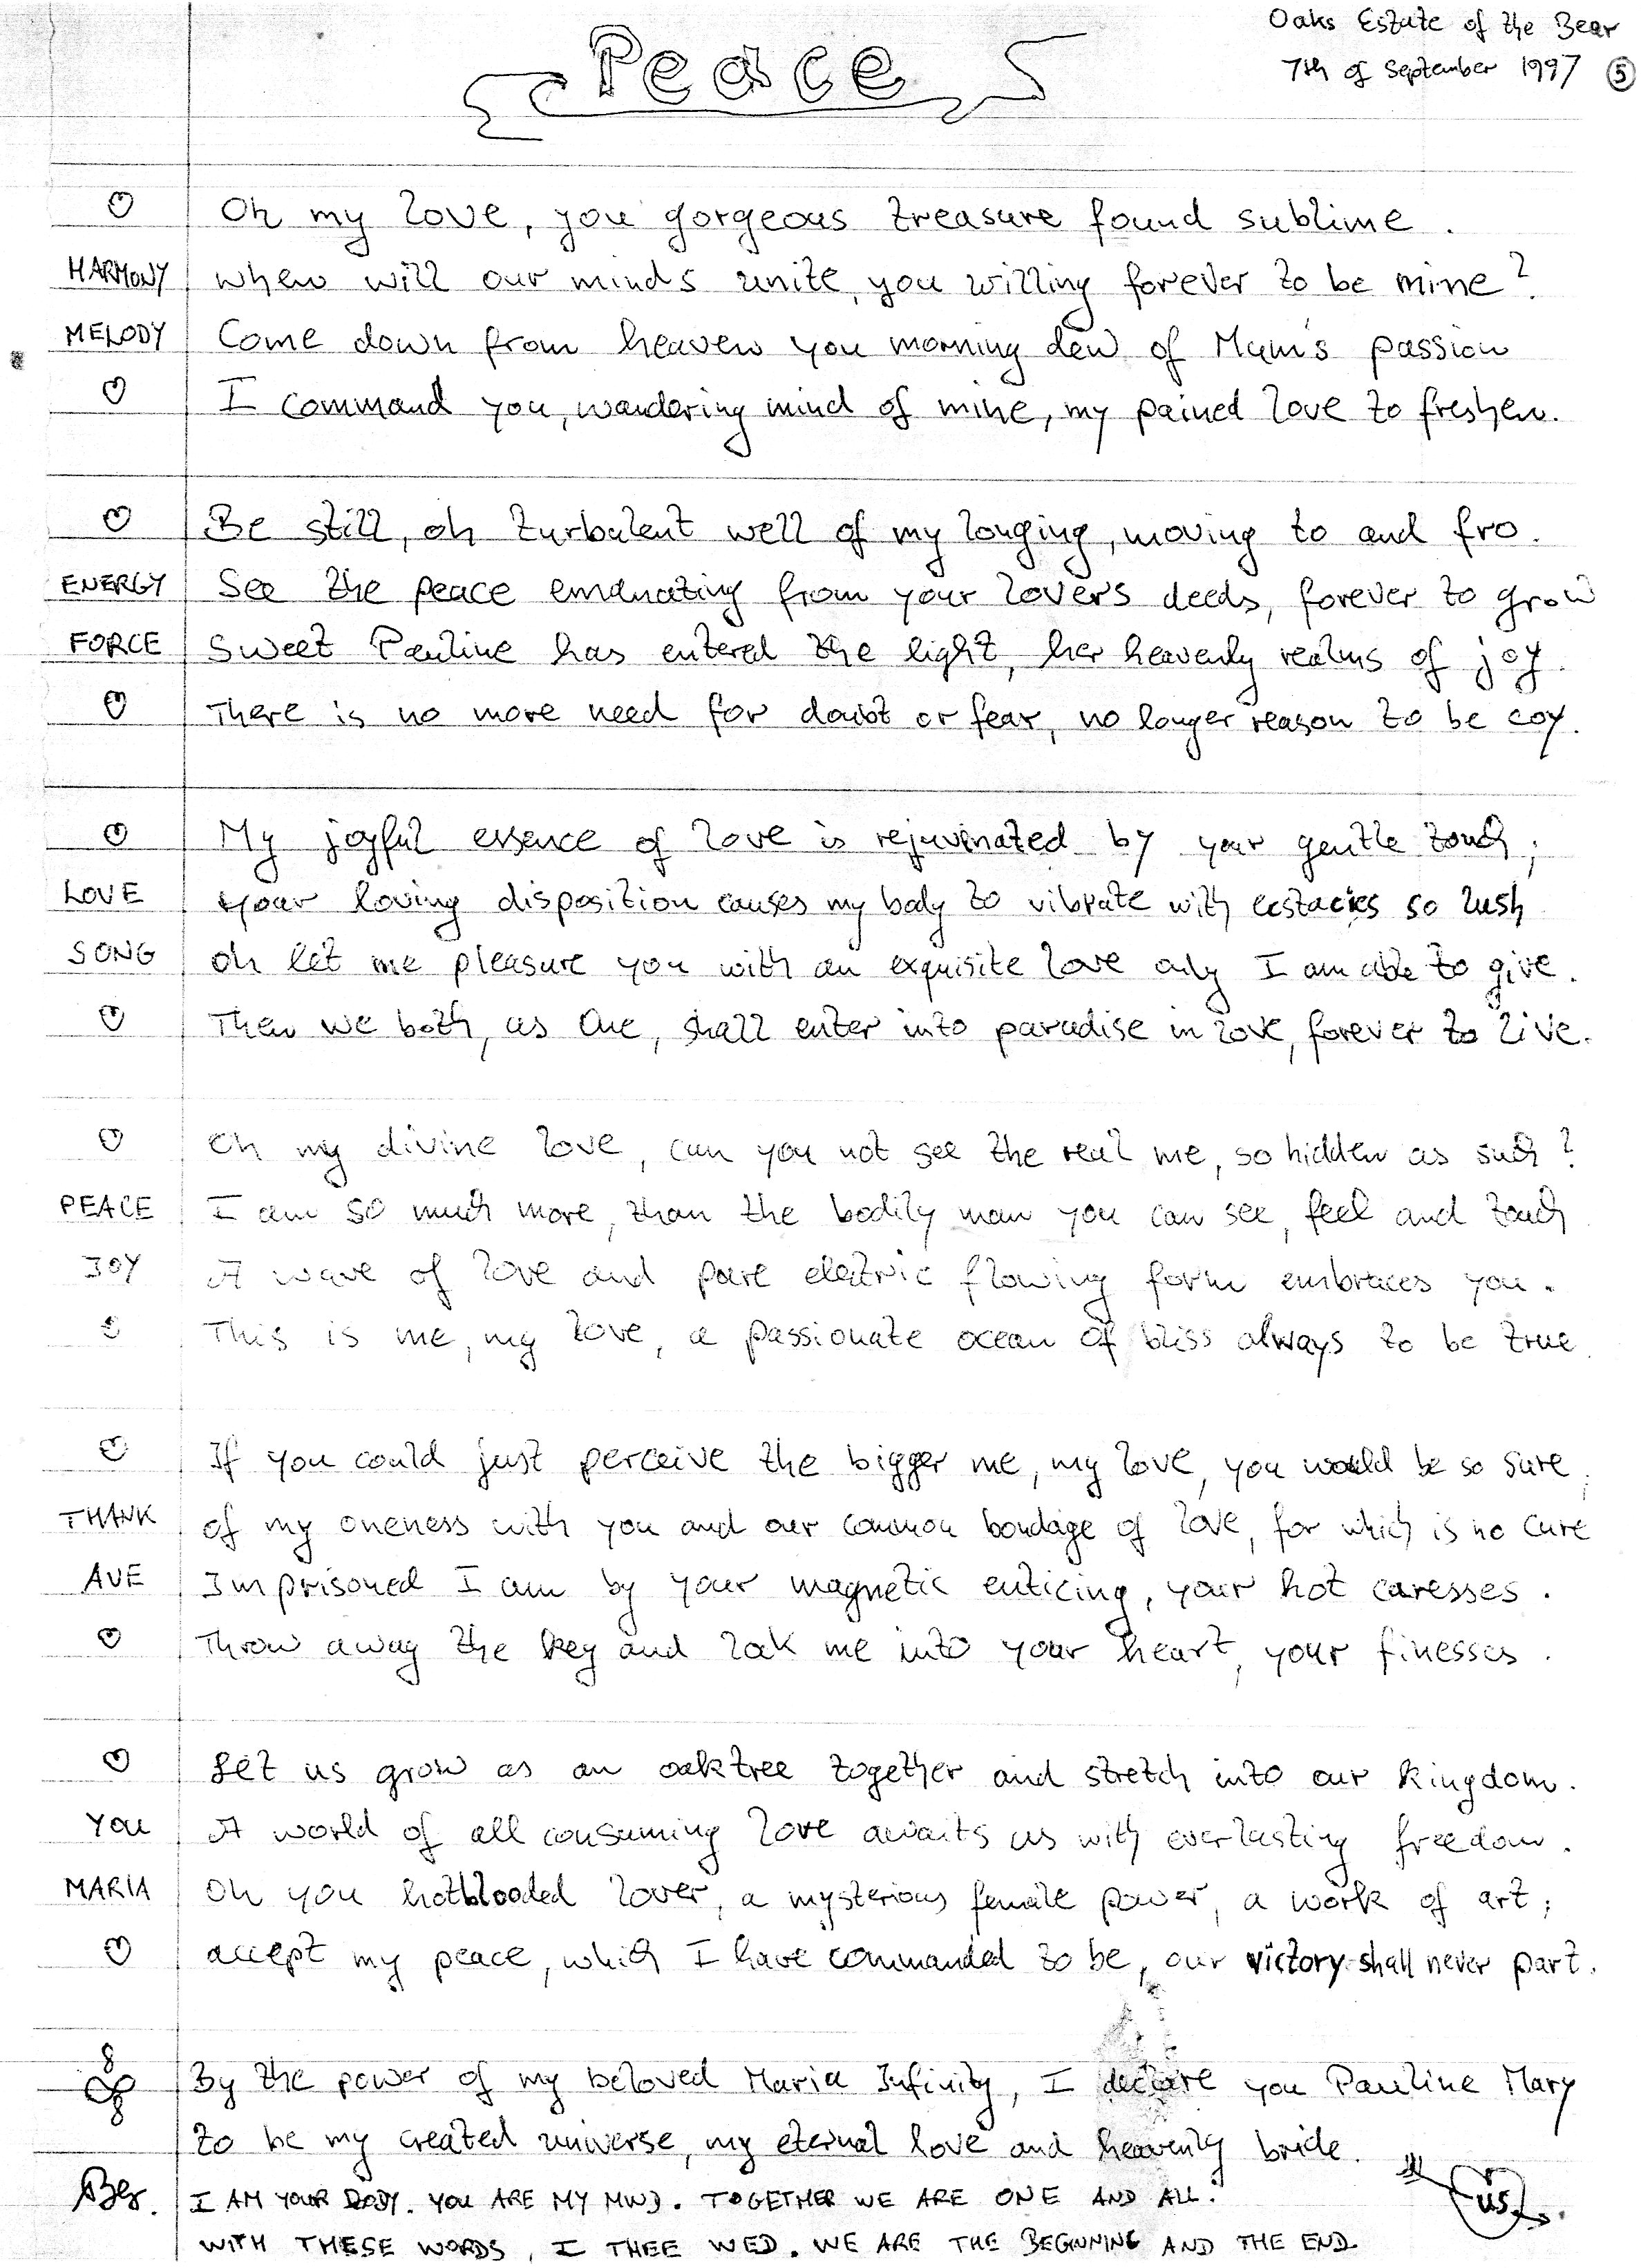 Oaks Estate of the Bear
7th of September 1997 5
Peace
Oh my love, you gorgeous treasure found sublime.
HARMONY when will our minds unite, you willing forever to be mine?
MELODY Come down from heaven you morning dew of Mum's passion
I command you, wandering mind of mine, my pained love to freshen.
Be still, oh turbulent well of my longing, moving to and fro.
ENERGY See the peace emanating from your lovers deeds, forever to grow
FORCE Sweet Pauline has entered the light, her heavenly realms of joy.
There is no more need for doubt or fear, no longer reason to be coy.
My joyful essence of love is rejuvinated by your gentle touch;
LOVE your loving disposition causes my body to vibrate with ecstacies so lush
SONG oh let me pleasure you with an exquisite love only I am able to give.
Then we both, as One, shall enter into paradise in love, forever to live.
Oh my divine love, can you not see the real me, so hidden as such?
PEACE I am so much more, than the bodily man you can see, feel and touch
JOY A wave of love and pure electric flowing form embraces you.
This is me, my love, a passionate ocean of bliss always to be true.
If you could just perceive the bigger me, my love, you would be so sure;
THANK of my oneness with you and our common bondage of love, for which is no cure
AVE Imprisoned I am by your magnetic enticing, your hot caresses.
Throw away the key and lock me into your heart, your finesses.
Let us grow as an oaktree together and stretch into our kingdom.
YOU A world of all consuming love awaits us with everlasting freedom.
MARIA Oh you hotblooded lover, a mysterious female power, a work of art;
accept my peace, which I have commanded to be, our victory shall never part.
By the power of my beloved Maria Infinity, I declare you Pauline Mary
to be my created universe, my eternal love and heavenly bride.
I AM YOUR BODY. YOU ARE MY MIND. TOGETHER WE ARE ONE AND ALL.
us
WITH THESE WORDS, I THEE WED. WE ARE THE BEGINNING AND THE END.